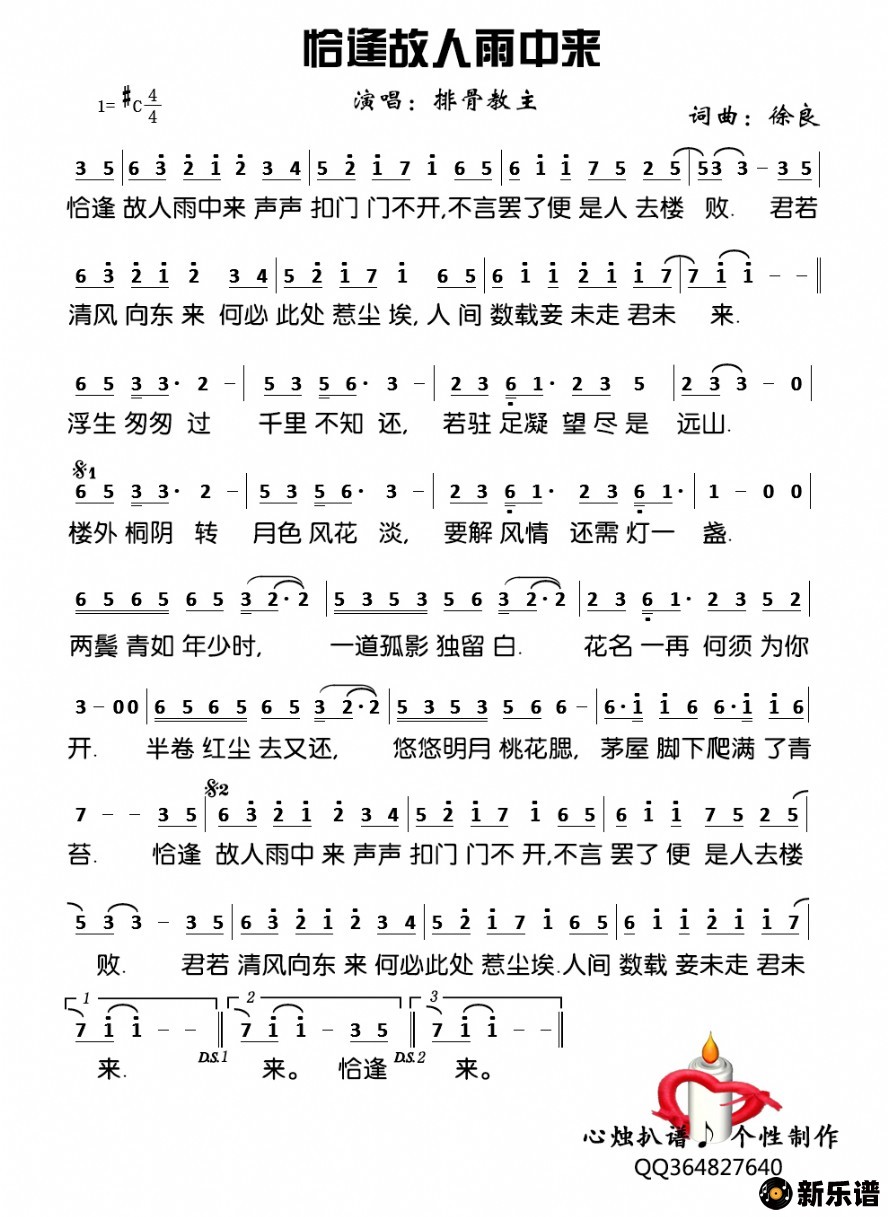 恰逢故人雨中来
1= #C 4/4
演唱：排骨教主
词曲：徐良
3 5 | 6 3̇ 2̇ 1̇ 2̇ 3 4 | 5 2̇ 1̇ 7 1̇ 6 5 | 6 1̇ 1̇ 7 5 2 5 | 5 3 3 – 3 5 |
恰逢 故人雨中来 声声 扣门 门不开,不言罢了便 是人 去楼 败. 君若
6 3̇ 2̇ 1̇ 2̇ 3 4 | 5 2̇ 1̇ 7 1̇ 6 5 | 6 1̇ 1̇ 2̇ 1̇ 1̇ 7 | 7 1̇ 1̇ – – ‖
清风 向东 来 何必 此处 惹尘 埃,人间 数载妾 未走 君未 来.
6 5 3 3· 2 – | 5 3 5 6· 3 – | 2 3 6̣ 1· 2 3 5 | 2 3 3 – 0 |
浮生 匆匆 过 千里 不知 还, 若驻 足凝 望尽是 远山.
𝄋1
6 5 3 3· 2 – | 5 3 5 6· 3 – | 2 3 6̣ 1· 2 3 6̣ 1· | 1 – 0 0 |
楼外 桐阴 转 月色 风花 淡, 要解 风情 还需 灯一 盏.
6 5 6 5 6 5 3 2· 2 | 5 3 5 3 5 6 3 2· 2 | 2 3 6̣ 1· 2 3 5 2 |
两鬓 青如 年少时, 一道孤影 独留 白. 花名 一再 何须 为你
3 – 0 0 | 6 5 6 5 6 5 3 2· 2 | 5 3 5 3 5 6 6 – | 6· 1̇ 1̇ 6 6· 1̇ 1̇ 6 |
开. 半卷 红尘 去又还, 悠悠明月 桃花腮, 茅屋 脚下爬满 了青
7 – – 3 5 | 𝄋2 6 3̇ 2̇ 1̇ 2̇ 3 4 | 5 2̇ 1̇ 7 1̇ 6 5 | 6 1̇ 1̇ 7 5 2 5 |
苔. 恰逢 故人雨中 来 声声 扣门 门不 开,不言 罢了 便 是人去楼
5 3 3 – 3 5 | 6 3̇ 2̇ 1̇ 2̇ 3 4 | 5 2̇ 1̇ 7 1̇ 6 5 | 6 1̇ 1̇ 2̇ 1̇ 1̇ 7 |
败. 君若 清风向东 来 何必此处 惹尘埃.人间 数载 妾未走 君未
1 2 3
7 1̇ 1̇ – – ‖ 7 1̇ 1̇ – 3 5 ‖ 7 1̇ 1̇ – – ‖
D.S.1 D.S.2
来. 来。 恰逢 来。
心烛扒谱♪个性制作
QQ364827640
新乐谱